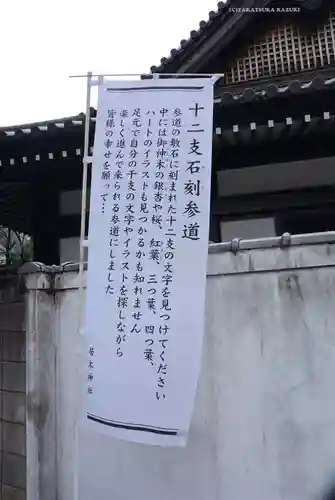 (C)TARATSUKA KAZUKI
十二支石刻参道
参道の敷石に刻まれた十二支の文字を見つけてください
中には御神木の銀杏や桜、紅葉、三つ葉、四つ葉、
ハートのイラストも見つかるかも知れません
足元で自分の干支の文字やイラストを探しながら
楽しく進んで来られる参道にしました
皆様の幸せを願って…
居木神社